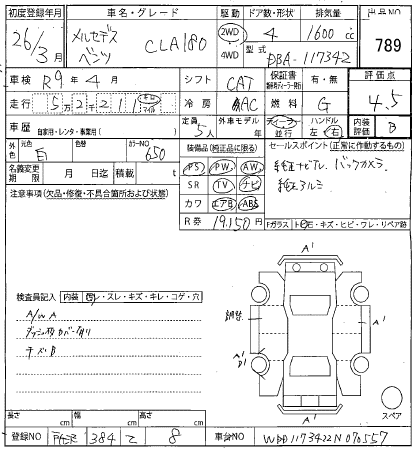 初度登録年月 車名・グレード 駆動 ドア数・形状 排気量 出品NO
26/3月 メルセデス ベンツ CLA180 2WD 4WD 4 1600cc 789
型式 DBA-117342
車検 R9年4月 シフト CAT 保証書 有・無 評価点
走行 5万2千211 キロ マイル 冷房 AAC 燃料 G 4.5
車歴 自家用・レンタ・事業用( ) 定員 5人 外車モデル 年 ディーラー 並行 ハンドル 左 右 内装評価 B
外色 元色 白 色替 カラーNO 650 装備品(純正品に限る) セールスポイント(正常に作動するもの)
名義変更期限 月 日迄 積載 t PS PW AW 純正ナビTV バックカメラ
注意事項(欠品・修復・不具合箇所および状態) SR TV ナビ 純正アルミ
カワ エアB ABS
R券 19,150円 Fガラス トビ石・キズ・ヒビ・ワレ・リペア跡
検査員記入 内装 レ・スレ・キズ・キレ・コゲ・穴
A'
A/W A
A'
A'
キズB
A'
スペア
長さ cm 幅 cm 高さ cm
登録NO 384 て 8 車台NO WDD1173422N070557